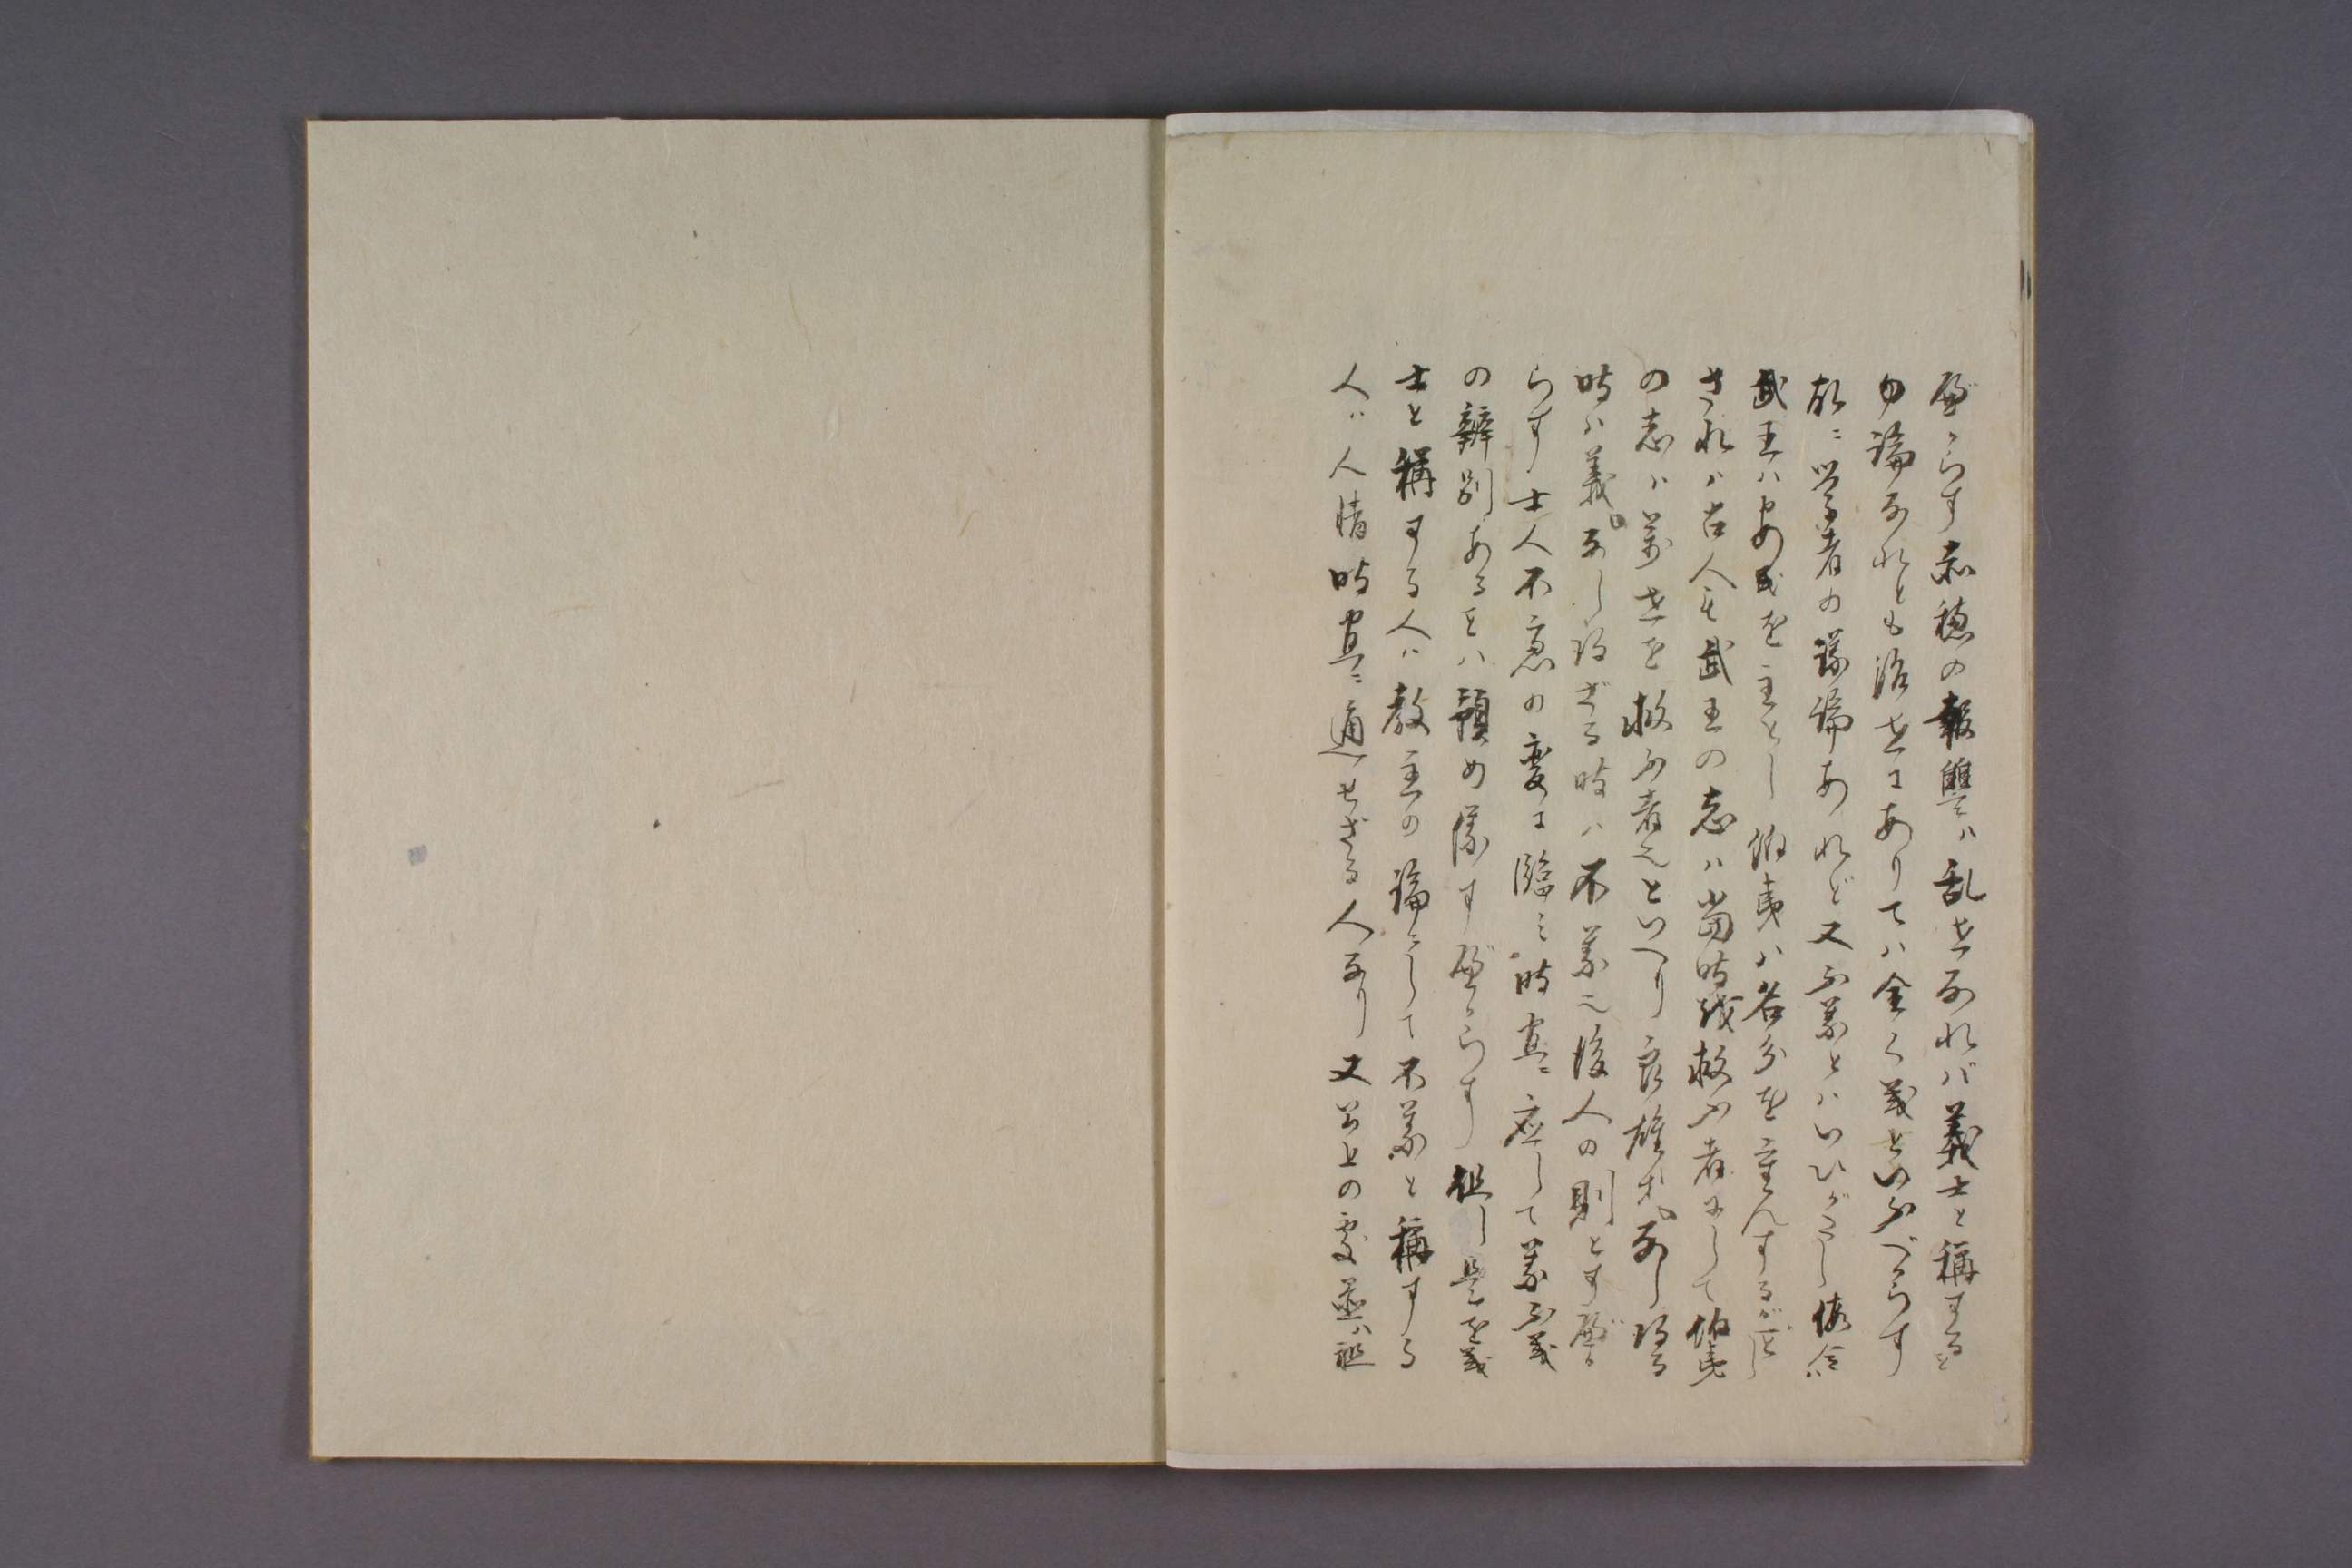 べからす赤穂の報讐ハ乱世なれバ義士と称するも
勿論なれとも治世にありてハ全く義といふべからす
故ニ学者の議論あれど又不義とハいひがたし仮令
武王ハ安民を主とし伯夷ハ名分を重んするがごとし
されバ古人も武王の志ハ当時を救ふ者にして伯夷
の志ハ万世を救ふ者也といへり良雄ガなし得る
時ハ義なし得ざる時ハ不義也後人の則とすべか
らす士人不慮の変に臨ミ時宜ニ応して義不義
の辨別あることハ預め儀すべからす但し是を義
士と称する人ハ教主の論にして不義と称する
人ハ人情時宜ニ通せざる人なり又公上の処置ハ